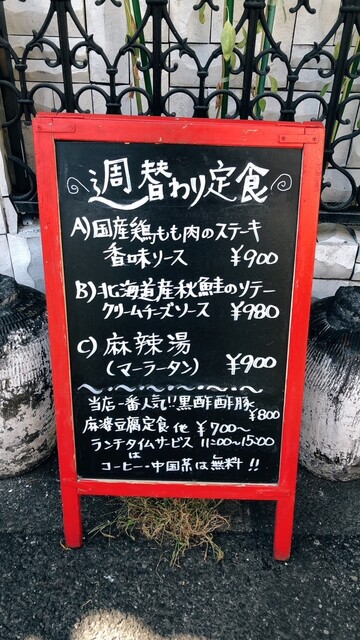 週替わり定食
A)国産鶏もも肉のステーキ
香味ソース ¥900
B)北海道産秋鮭のソテー
クリームチーズソース ¥980
C)麻辣湯
(マーラータン) ¥900
当店一番人気!!黒酢酢豚
¥800
麻婆豆腐定食 他 ¥700〜
ランチタイムサービス 11:00〜15:00
は
コーヒー・中国茶は無料!!